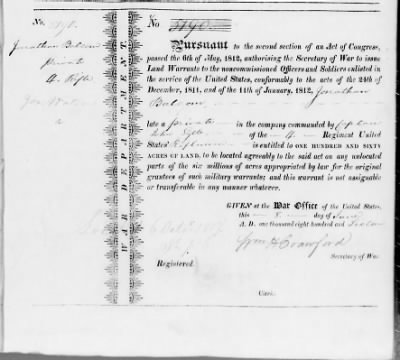 No.
No
Jonathan
private
4. Rifle
WAR DEPARTMENT.
Pursuant to the second section of an Act of Congress,
passed the 6th of May, 1812, authorising the Secretary of War to issue
Land Warrants to the noncommissioned Officers and Soldiers enlisted in
the service of the United States, conformably to the acts of the 24th of
December, 1811, and of the 11th of January, 1812, Jonathan
late a private in the company commanded by Captain
John of the 4 Regiment United
States' Riflemen is entitled to ONE HUNDRED AND SIXTY
ACRES OF LAND, to be located agreeably to the said act on any unlocated
part of the six millions of acres appropriated by law for the original
grantees of such military warrants; and this warrant is not assignable
or transferable in any manner whatever.
GIVEN at the War Office of the United States,
this 8 day of
A. D. one thousand eight hundred and
Wm H Crawford
Secretary of War
Registered